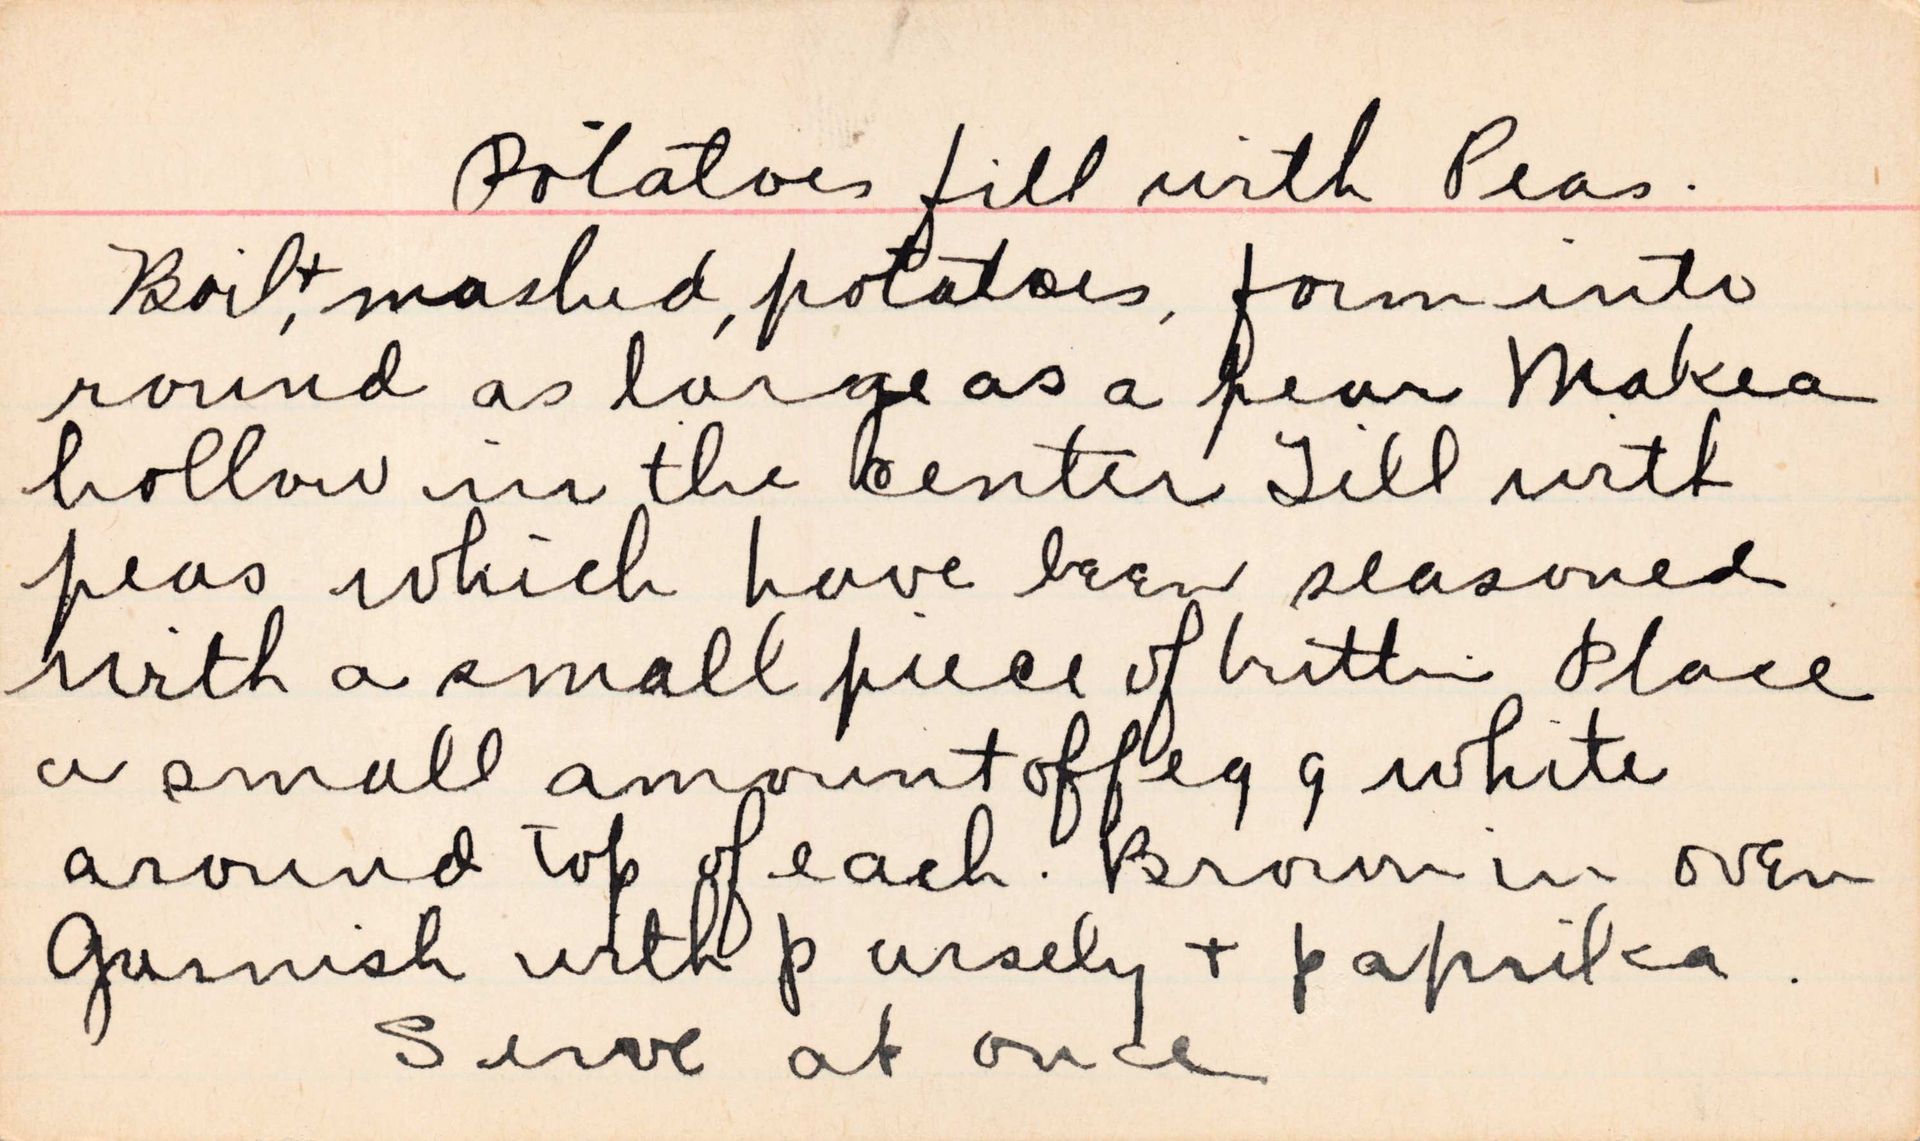 Potatoes fill with Peas.
Boil, + mashed, potatoes, form into
round as large as a pear Make a
hollow in the center Fill with
peas which have been seasoned
with a small piece of butter Place
a small amount off egg white
around top of each. Brown in oven
Garnish with parsely + paprika.
Serve at once